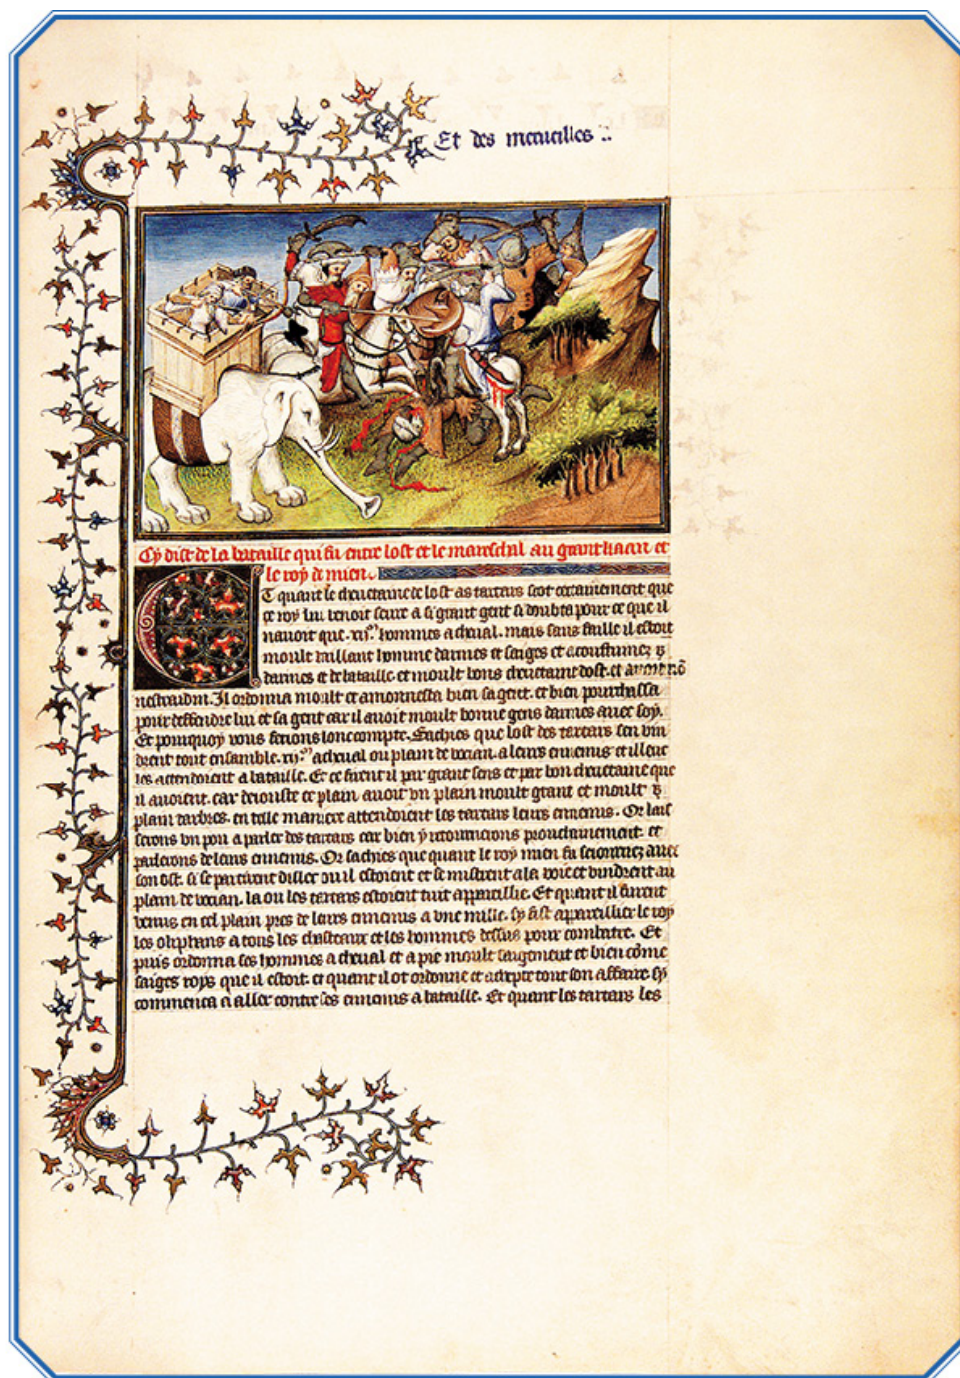 Et des merueilles
Cy dist de la bataille qui fu entre lost et le mareschal au grant kaan et
le roy de mien.
Et quant le cheuetaine de lost as tartars sceut certainement que
ce roy lui venoit seure a si grant gent si doubta pour ce que il
nauoit que .xii.m hommes a cheual. mais sans faille il estoit
moult vaillant homme darmes et saiges et acoustumez
darmes et de bataille et moult bons cheuetaine dost. et auoit nō
Il ordonna moult et amonnesta bien sa gent. et bien pourchassa
pour deffendre lui et sa gent car il auoit moult bonne gens darmes auec soy.
Et pourquoy vous ferons lonc compte. Sachies que lost des tartars sen vin
drent tout ensamble .xij.m a cheual ou plain de vocian. a leurs ennemis et illeuc
les attendoient a bataille. Et ce firent il par grant sens et par bon cheuetaine que
il auoient. car deiouste ce plain auoit vn plain moult grant et moult
plain darbres. en telle maniere attendoient les tartars leurs ennemis. Or lais
serons vn pou a parler des tartars car bien y retournerons prouchainement. et
parlerons de leurs ennemis. Or sachies que quant le roy mien fu seiournez auec
son ost. si se partirent dillec ou il estoient et se mistrent a la voie et vindrent au
plain de vocian. la ou les tartars estoient tuit appareillie. Et quant il furent
venus en cel plain pres de leurs ennemis a vne mille. sy fist appareillier le roy
les oliphans a tous les chasteaux et les hommes dessus pour combatre. Et
puis ordonna ses hommes a cheual et a pie moult saigement et bien cōme
saiges roys que il estoit. et quant il ot ordonne et tout son affaire. sy
commenca a aller contre ses ennemis a bataille. Et quant les tartars les